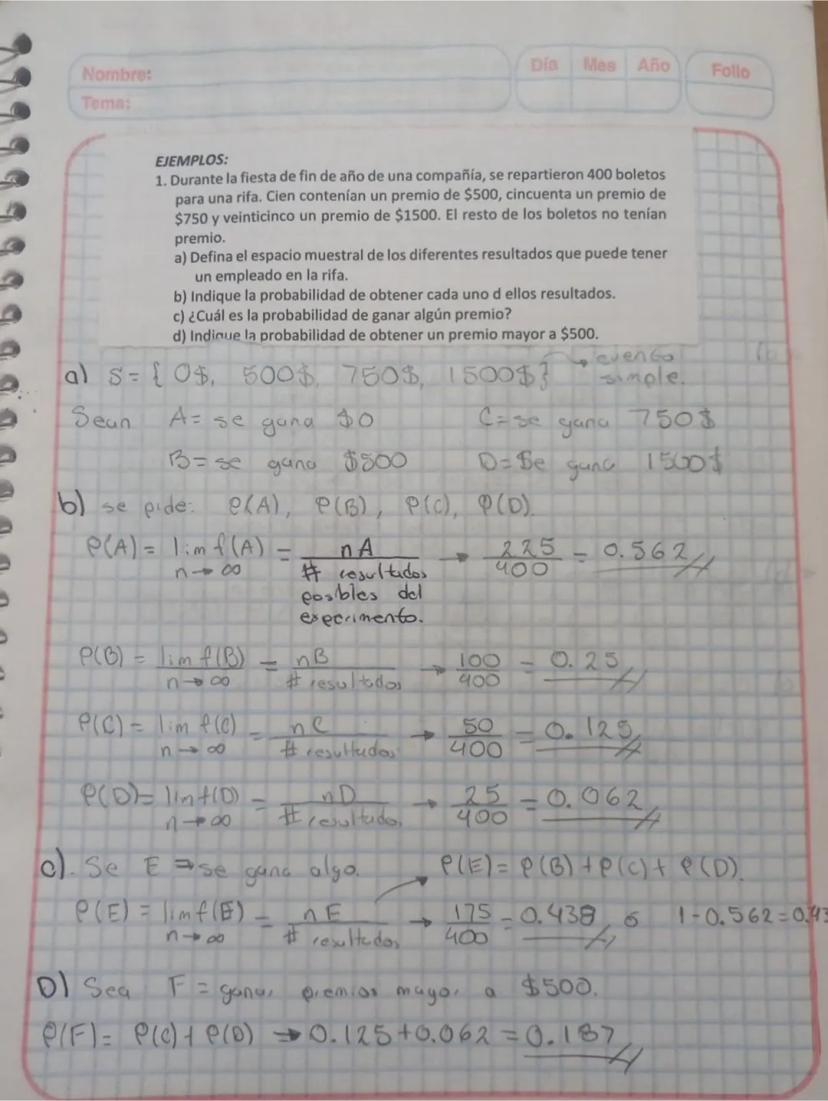 Nombre:
Día Mes Año
Folio
Tema:
EJEMPLOS:
1. Durante la fiesta de fin de año de una compañía, se repartieron 400 boletos
para una rifa. Cien contenían un premio de $500, cincuenta un premio de
$750 y veinticinco un premio de $1500. El resto de los boletos no tenían
premio.
a) Defina el espacio muestral de los diferentes resultados que puede tener
un empleado en la rifa.
b) Indique la probabilidad de obtener cada uno d ellos resultados.
c) ¿Cuál es la probabilidad de ganar algún premio?
d) Indique la probabilidad de obtener un premio mayor a $500.
a) S = { 0$, 500$, 750$, 1500$} → evento
simple.
Sean A = se gana $0 C = se gana 750$
B = se gana $500 D = Se gana 1500$
b) se pide: P(A), P(B), P(C), P(D).
P(A) = lim f(A) = nA → 225 = 0.562
n→∞ # resultados 400
posibles del
experimento.
P(B) = lim f(B) = nB → 100 = 0.25
n→∞ # resultados 400
P(C) = lim f(C) = nC → 50 = 0.125
n→∞ # resultados 400
P(D) = lim f(D) = nD → 25 = 0.062
n→∞ # resultados 400
c). Se E ⇒ se gana algo. P(E) = P(B) + P(C) + P(D).
P(E) = lim f(E) = nE → 175 = 0.438 ó 1-0.562=0.43
n→∞ # resultados 400
D) Sea F = ganar premios mayor a $500.
P(F) = P(C) + P(D) → 0.125 + 0.062 = 0.187